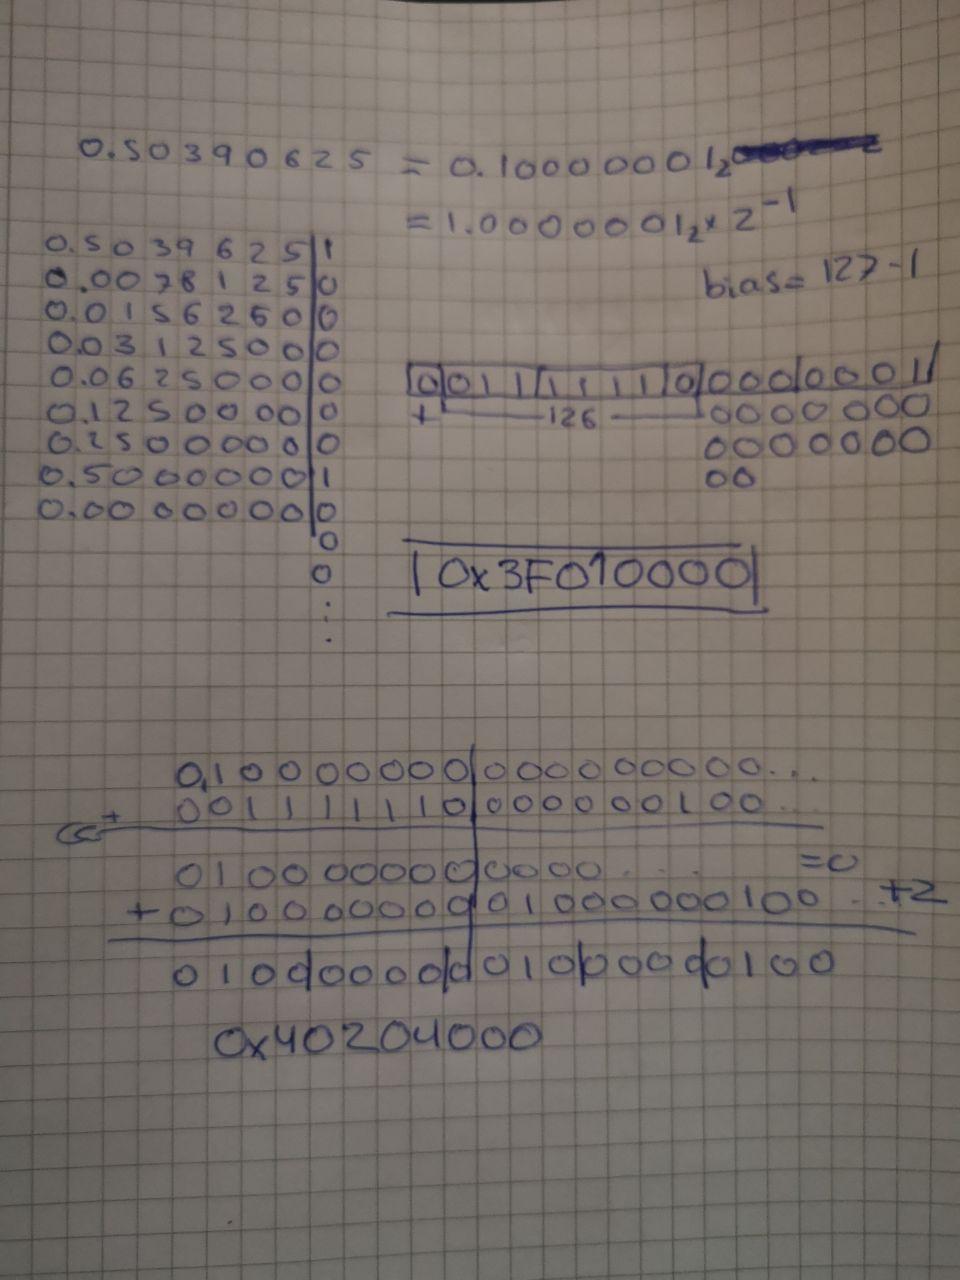 0.50390625 = 0.10000001₂
= 1.0000001₂ × 2⁻¹
bias = 127-1
0.5039625|1
0.0078125|0
0.0156250|0
0.0312500|0
0.0625000|0
0.1250000|0
0.2500000|0
0.5000000|1
0.0000000|0
0
0
...
0 0111111 0 0000001
+ 126 0000000
0000000
00
0x3F010000
0,10000000|000000000...
+ 001111110|000000100...
0100000000|0000... =0
+ 010000000|01000000100.. +2
010000000|01000000100
0x40204000